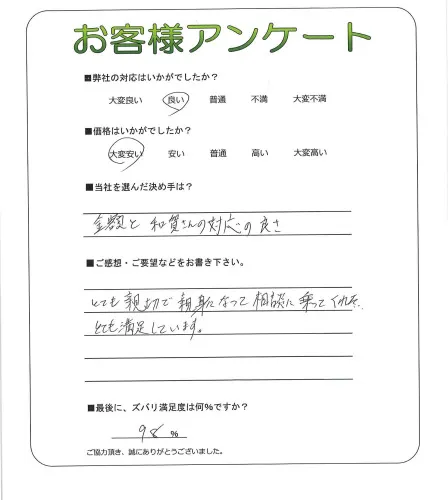 お客様アンケート
■弊社の対応はいかがでしたか？
大変良い 良い 普通 不満 大変不満
■価格はいかがでしたか？
大変安い 安い 普通 高い 大変高い
■当社を選んだ決め手は？
金額と和賀さんの対応の良さ
■ご感想・ご要望などをお書き下さい。
とても親切で親身になって相談に乗ってくれて、
とても満足しています。
■最後に、ズバリ満足度は何%ですか？
98 %
ご協力頂き、誠にありがとうございました。